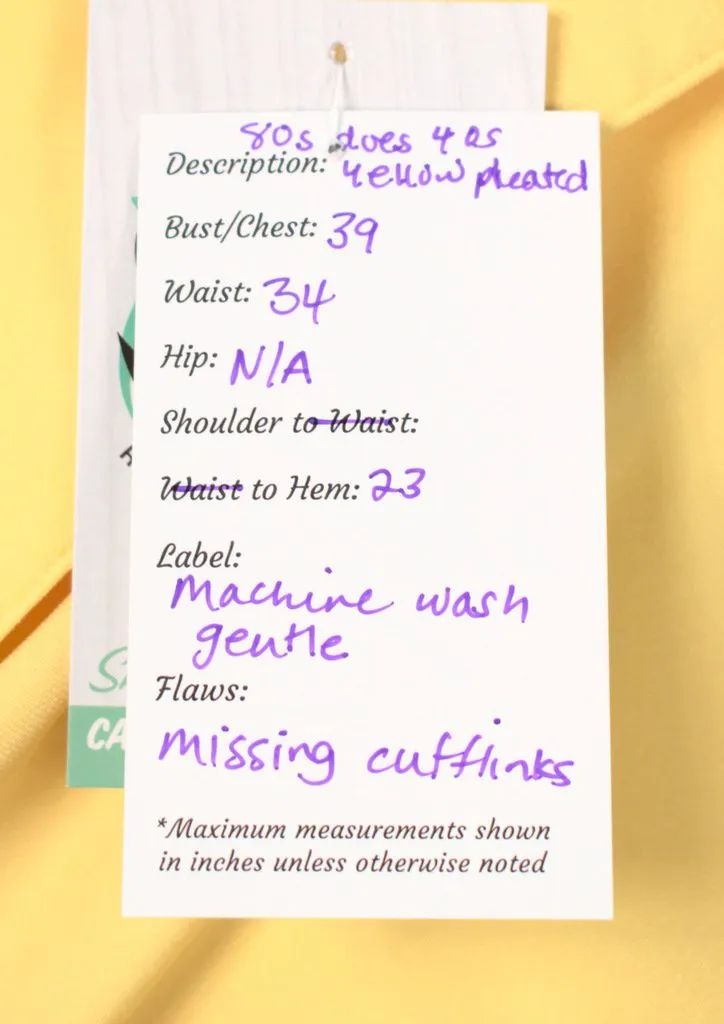 80s does 40s
Description: yellow pleated
Bust/Chest: 39
Waist: 34
Hip: N/A
Shoulder to Waist:
Waist to Hem: 23
Label:
Machine wash
gentle
Flaws:
missing cufflinks
*Maximum measurements shown
in inches unless otherwise noted
CA